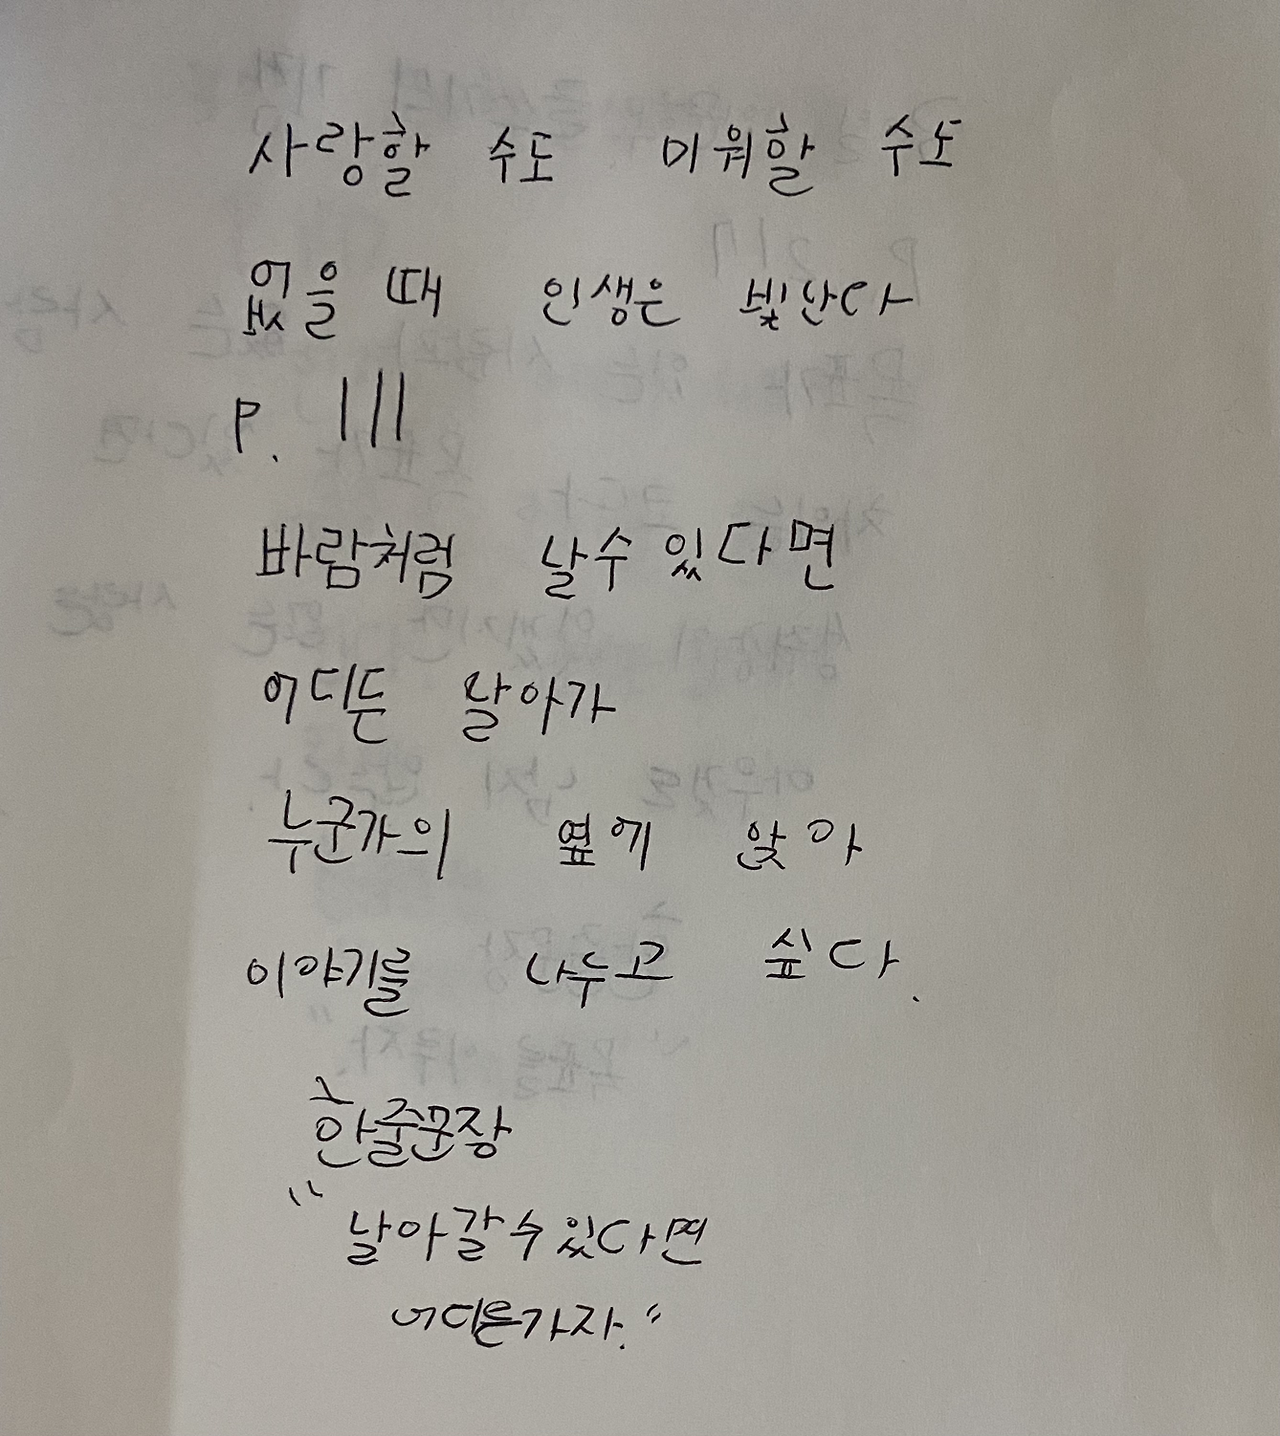 사랑할 수도 미워할 수도
없을 때 인생은 빛난다
P. 111
바람처럼 날수있다면
어디든 날아가
누군가의 옆에 앉아
이야기를 나누고 싶다.
한줄문장
"날아갈수있다면
어디든가자."